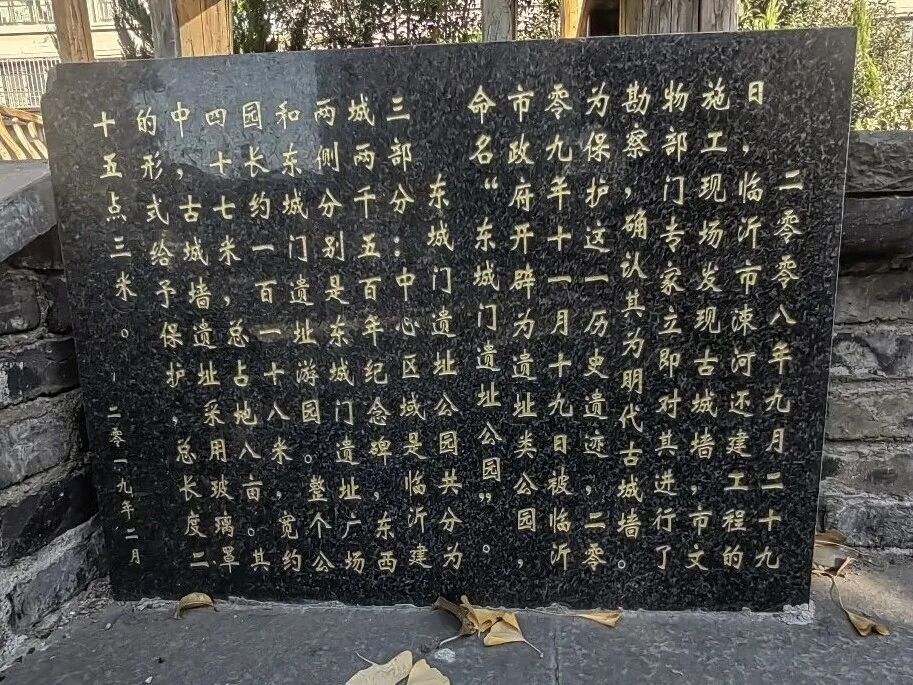 二零零八年九月二十九
日，临沂市涑河还建工程的
施工现场发现古城墙，市文
物部门专家立即对其进行了
勘察，确认其为明代古城墙。
为保护这一历史遗迹，二零
零九年十一月十九日被临沂
市政府开辟为遗址类公园，
命名“东城门遗址公园”。
东城门遗址公园共分为
三部分；中心区域是临沂建
城两千五百年纪念碑，东西
两侧分别是东城门遗址广场
和东城门遗址游园。整个公
园长约一百一十八米，宽约
四十七米，总占地八亩。其
中，古城墙遗址采用玻璃罩
的形式给予保护，总长度二
十五点三米。
二零一九年二月